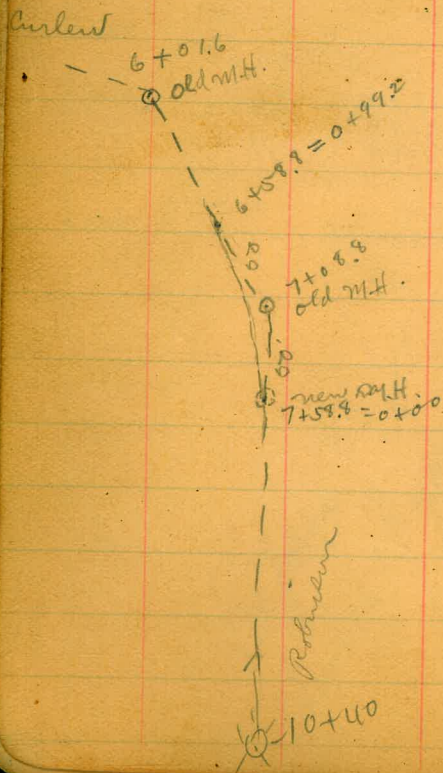 Curlew
6+01.6
old M.H.
6+58.8 = 0+99.2
50
7+08.8
old M.H.
50'
new M.H.
7+58.8 = 0+00
Robinson
10+40